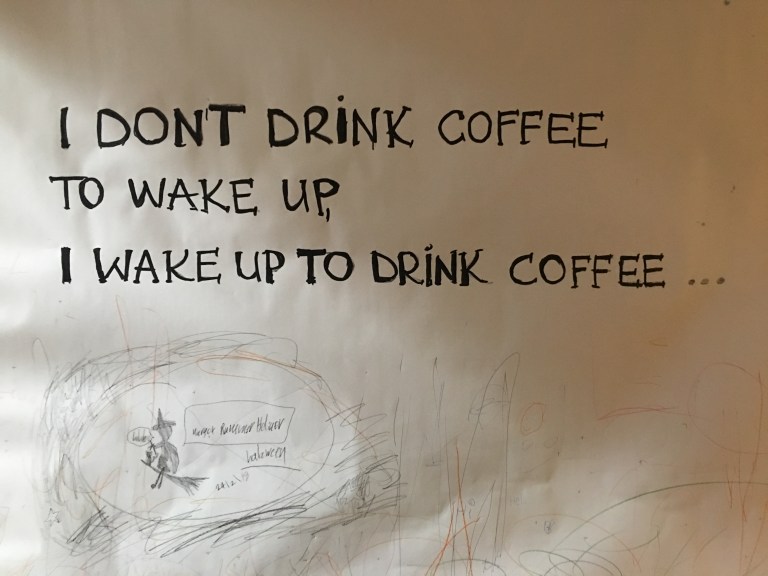 I DON'T DRINK COFFEE
TO WAKE UP,
I WAKE UP TO DRINK COFFEE ...